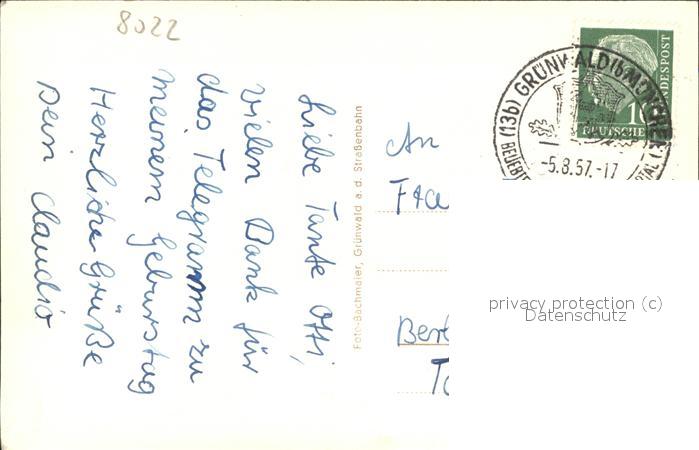 8022
Liebe Tante Otti,
vielen Dank für
das Telegramm zu
meinem Geburstag
Herzliche Grüße
Dein Claudio
Foto-Bachmaier, Grünwald a. d. Straßenbahn
An
Ber
(13b) GRÜNWALD (b. MÜNCHEN)
-5.8.57.-17
BUNDESPOST
10
DEUTSCHE
privacy protection (c)
Datenschutz